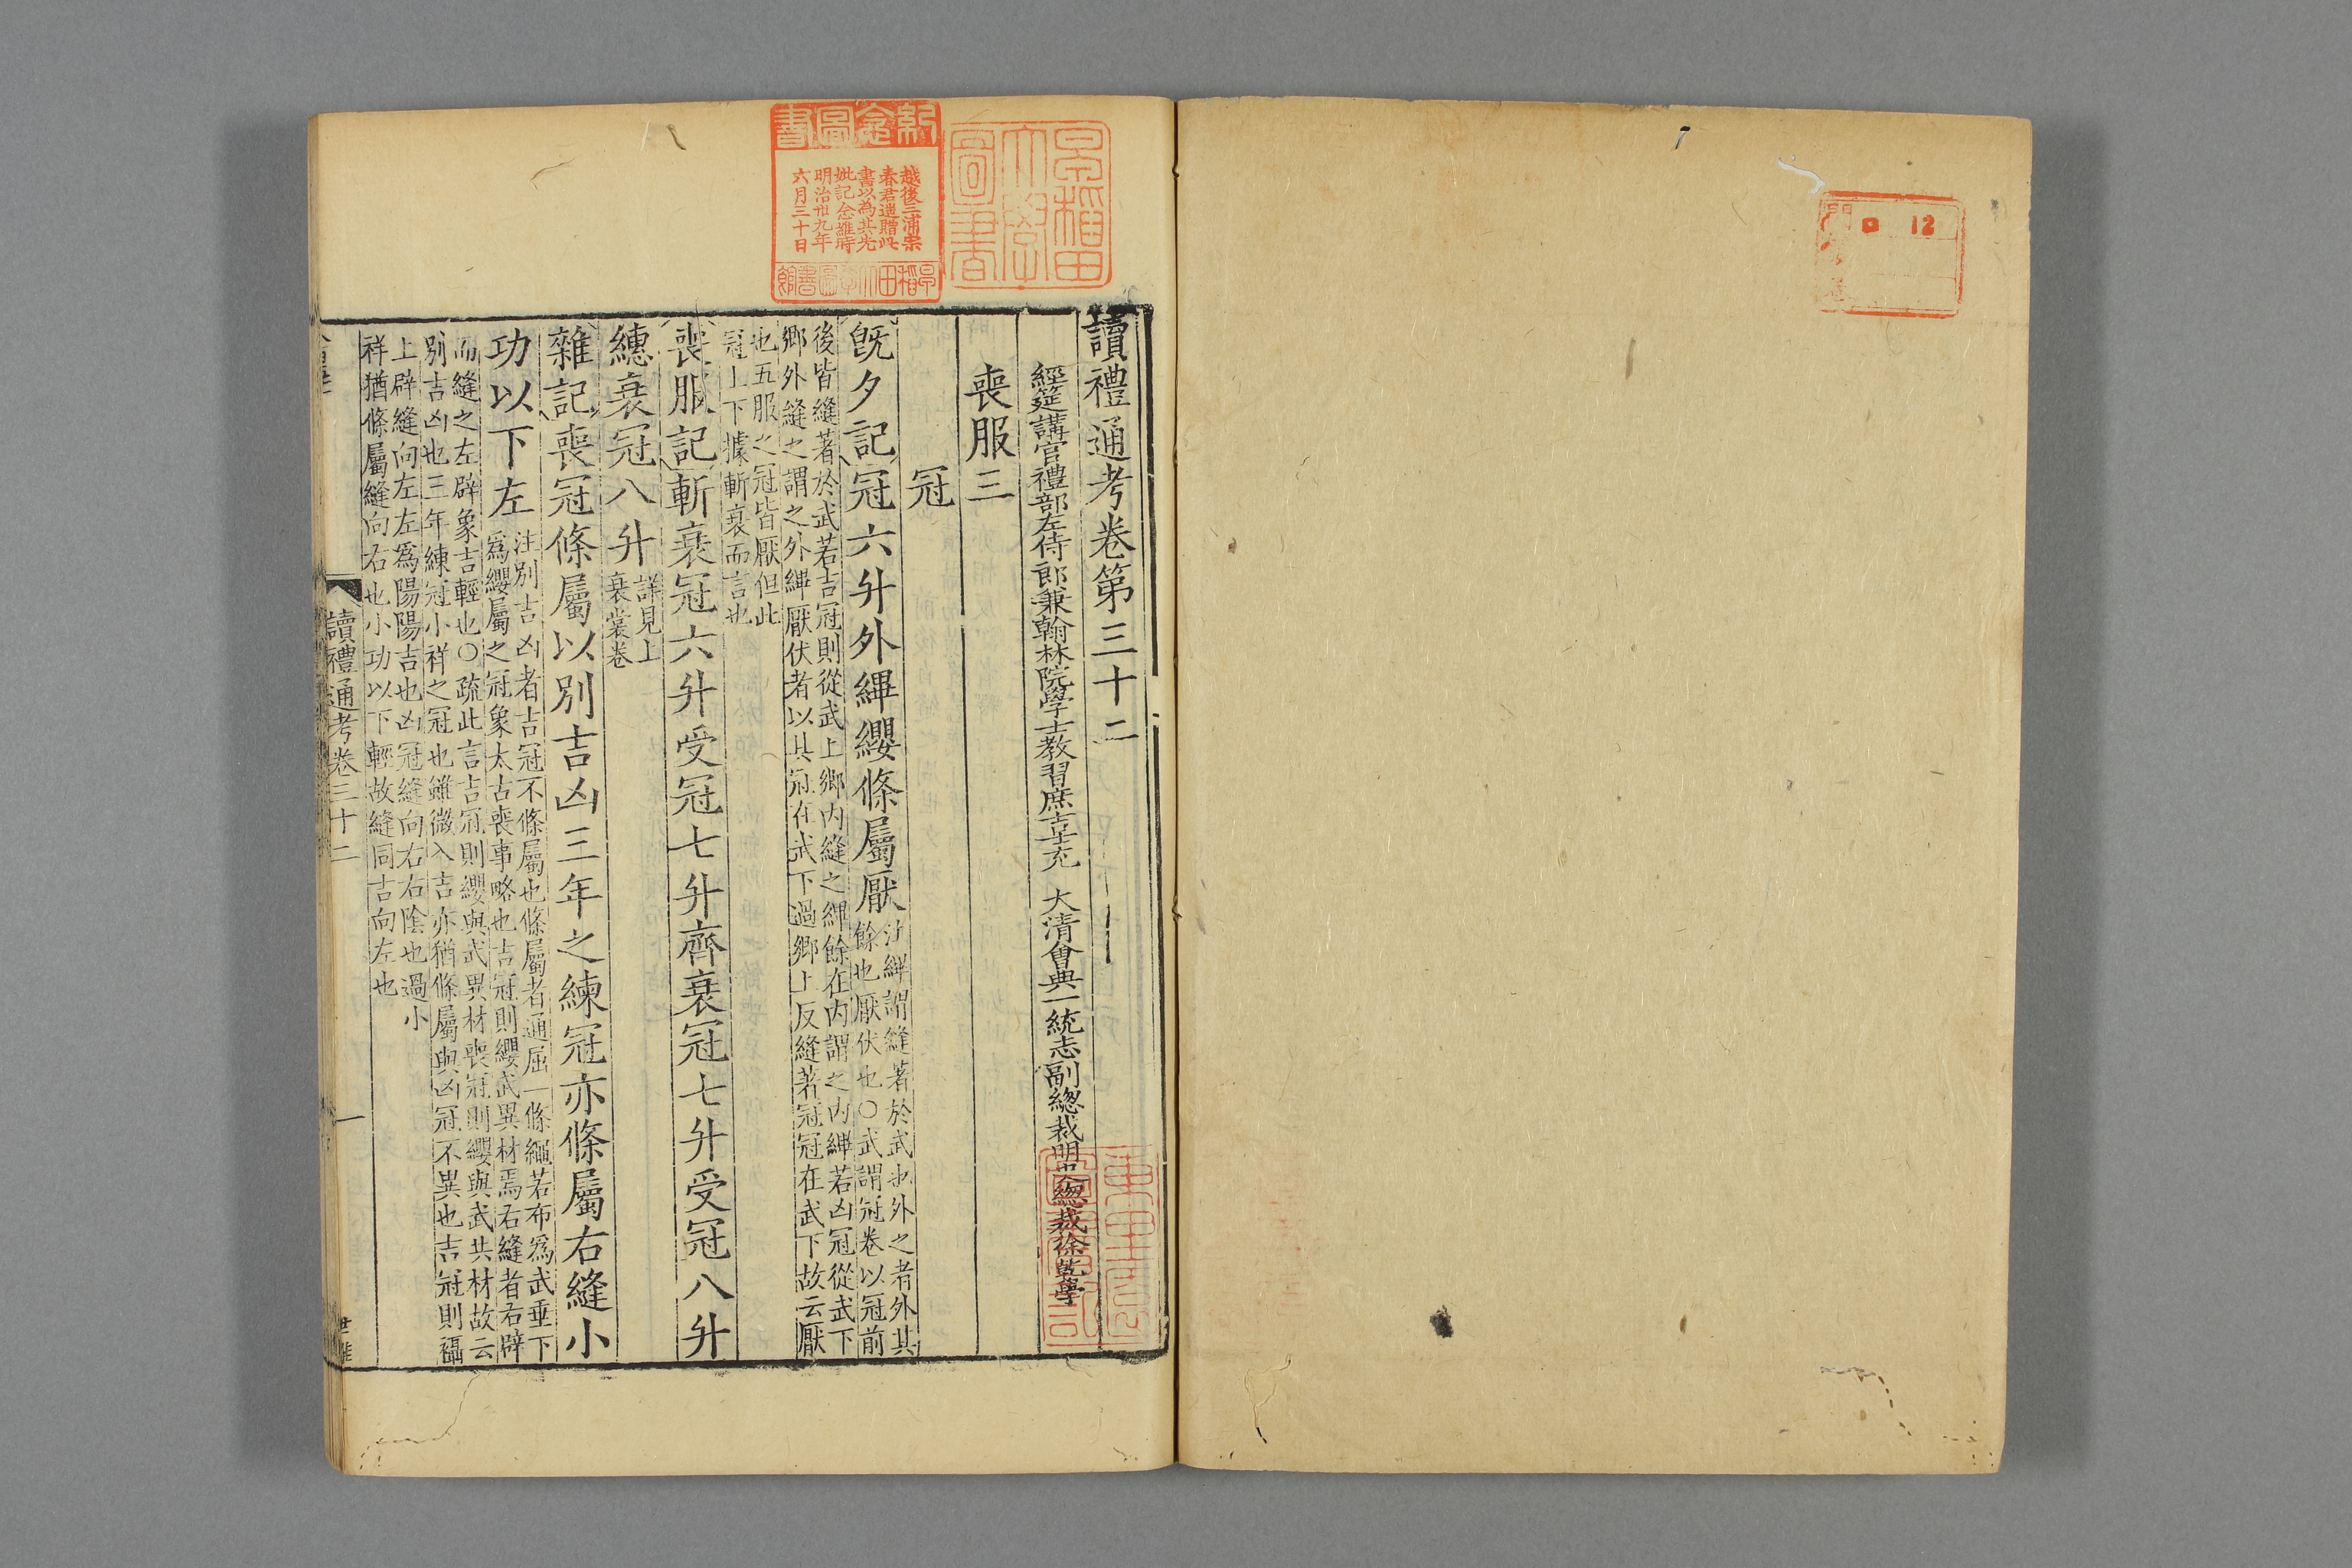 12
讀禮通考卷第三十二
經筵講官禮部左侍郎兼翰林院學士教習庶吉士充 大清會典一統志副總裁明史總裁徐乾學
喪服三
冠
旣夕記冠六升外縪纓條屬厭
注縪謂縫著於武也外之者外其
餘也厭伏也○武謂冠卷以冠前
後皆縫著於武若吉冠則從武上鄉内縫之縪餘在内謂之内縪若凶冠從武下
鄉外縫之謂之外縪厭伏者以其冠在武下過鄉上反縫著冠冠在武下故云厭
也五服之冠皆厭但此
冠上下據斬衰而言也
喪服記斬衰冠六升受冠七升齊衰冠七升受冠八升
繐衰冠八升
詳見上
衰裳卷
雜記喪冠條屬以別吉凶三年之練冠亦條屬右縫小
功以下左
注別吉凶者吉冠不條屬也條屬者通屈一條繩若布爲武垂下
爲纓屬之冠象太古喪事略也吉冠則纓武異材焉右縫者右辟
而縫之左辟象吉輕也○疏此言吉冠則纓與武異材喪冠則纓與武共材故云
别吉凶也三年練冠小祥之冠也雖微入吉亦猶條屬與凶冠不異也吉冠則襵
上辟縫向左左爲陽陽吉也凶冠縫向右右陰也過小
祥猶條屬縫向右也小功以下輕故縫同吉向左也
讀禮通考卷三十二
一
紀念圖書
越後三浦宗
春君遺贈此
書以為其先
妣記念雖時
明治卅九年
六月三十日
早稻田大學圖書館
早稻田大學圖書